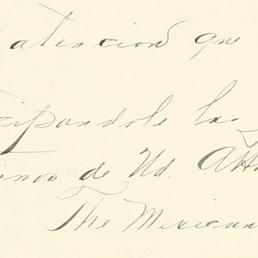 atencion que
cipandole las
mos de Ud. Att
The Mexican